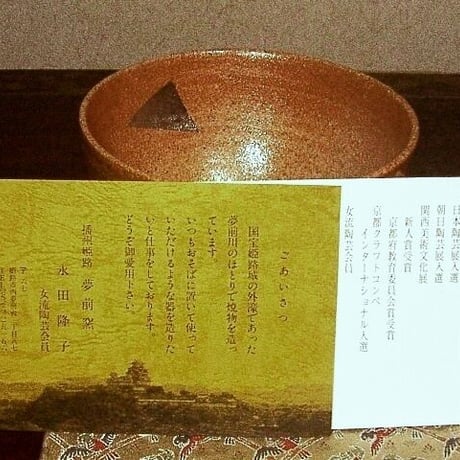 ごあいさつ
国宝姫路城の外濠であった
夢前川のほとりで焼物を造っ
ています。
いつもおそばに置いて使って
いただけるような器を造りた
いと仕事をしております。
どうぞ御愛用下さい。
播州姫路 夢前窯
永田隆子
女流陶芸会員
日本陶芸展入選
朝日陶芸展入選
関西美術文化展
新人賞受賞
京都府教育委員会賞受賞
京都クラフトコンペ
インターナショナル入選
女流陶芸会員